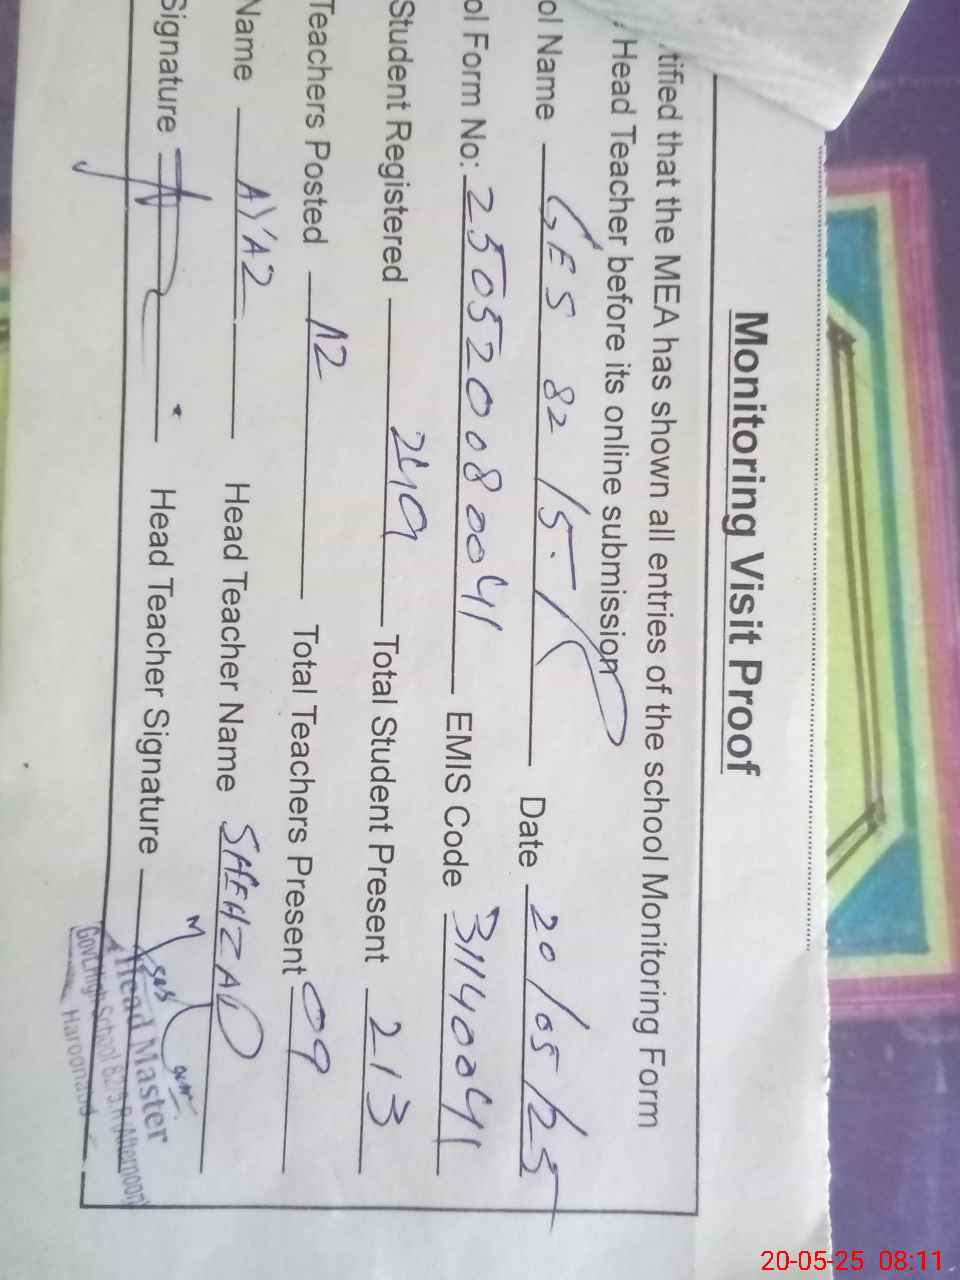 Monitoring Visit Proof
tified that the MEA has shown all entries of the school Monitoring Form
Head Teacher before its online submission
ol Name GES 82/5-R Date 20/05/25
ol Form No: 250520080041 EMIS Code 31140041
Student Registered Total Student Present 213
Teachers Posted 12 Total Teachers Present 09
Name AYAZ Head Teacher Name SHEHZAD
Signature Head Teacher Signature
Head Master
Govt. High School 82/5.R (Afternoon)
Haroonabad
20-05-25 08:11